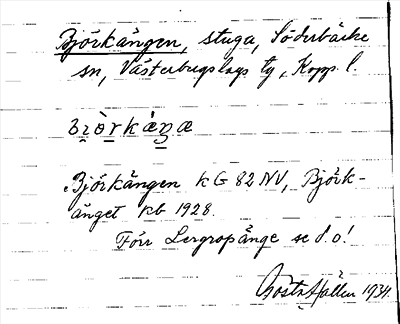 Björkängen, stuga, Söderbärke
sn, Västerbergslags tg, Kopp. l.
Björkängen kG 82 NV, Björk-
änget kb 1928.
Förr Lergropänge se d.o!
Gösta Hallén 1934.